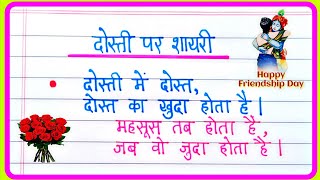 दोस्ती पर शायरी
Happy
Friendship Day
दोस्ती में दोस्त,
दोस्त का खुदा होता है।
महसूस तब होता है,
जब वो जुदा होता है।